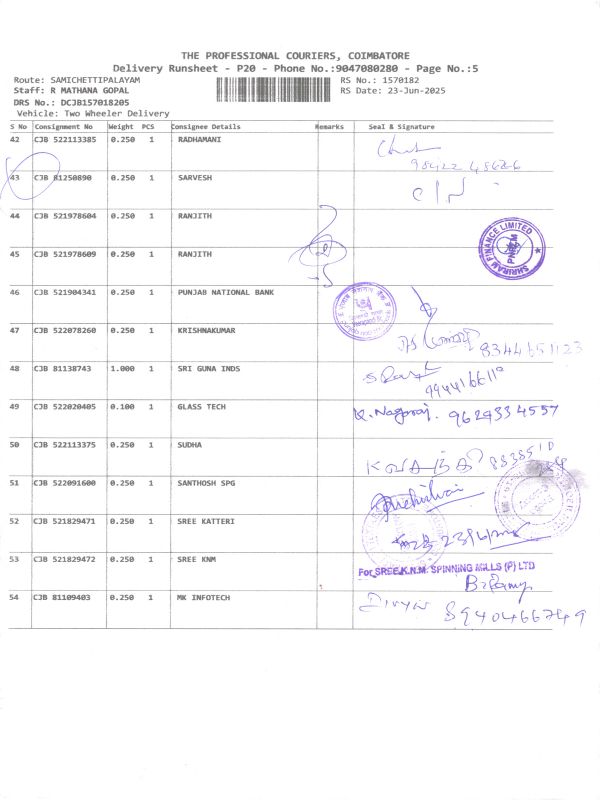 THE PROFESSIONAL COURIERS, COIMBATORE
Delivery Runsheet - P20 - Phone No.:9047080280 - Page No.:5
Route: SAMICHETTIPALAYAM RS No.: 1570182
Staff: R MATHANA GOPAL RS Date: 23-Jun-2025
DRS No.: DCJB157018205
Vehicle: Two Wheeler Delivery
S No Consignment No Weight PCS Consignee Details Remarks Seal & Signature
42 CJB 522113385 0.250 1 RADHAMANI
43 CJB 81250890 0.250 1 SARVESH
44 CJB 521978604 0.250 1 RANJITH
SHRIRAM FINANCE LIMITED
45 CJB 521978609 0.250 1 RANJITH
46 CJB 521904341 0.250 1 PUNJAB NATIONAL BANK
47 CJB 522078260 0.250 1 KRISHNAKUMAR 8344651123
48 CJB 81138743 1.000 1 SRI GUNA INDS
49 CJB 522020405 0.100 1 GLASS TECH K. Nagaraj. 9629334557
50 CJB 522113375 0.250 1 SUDHA
51 CJB 522091600 0.250 1 SANTHOSH SPG
52 CJB 521829471 0.250 1 SREE KATTERI 23/6/
53 CJB 521829472 0.250 1 SREE KNM
For SREE.K.N.M. SPINNING MILLS (P) LTD
54 CJB 81109403 0.250 1 MK INFOTECH Divya 8940466749